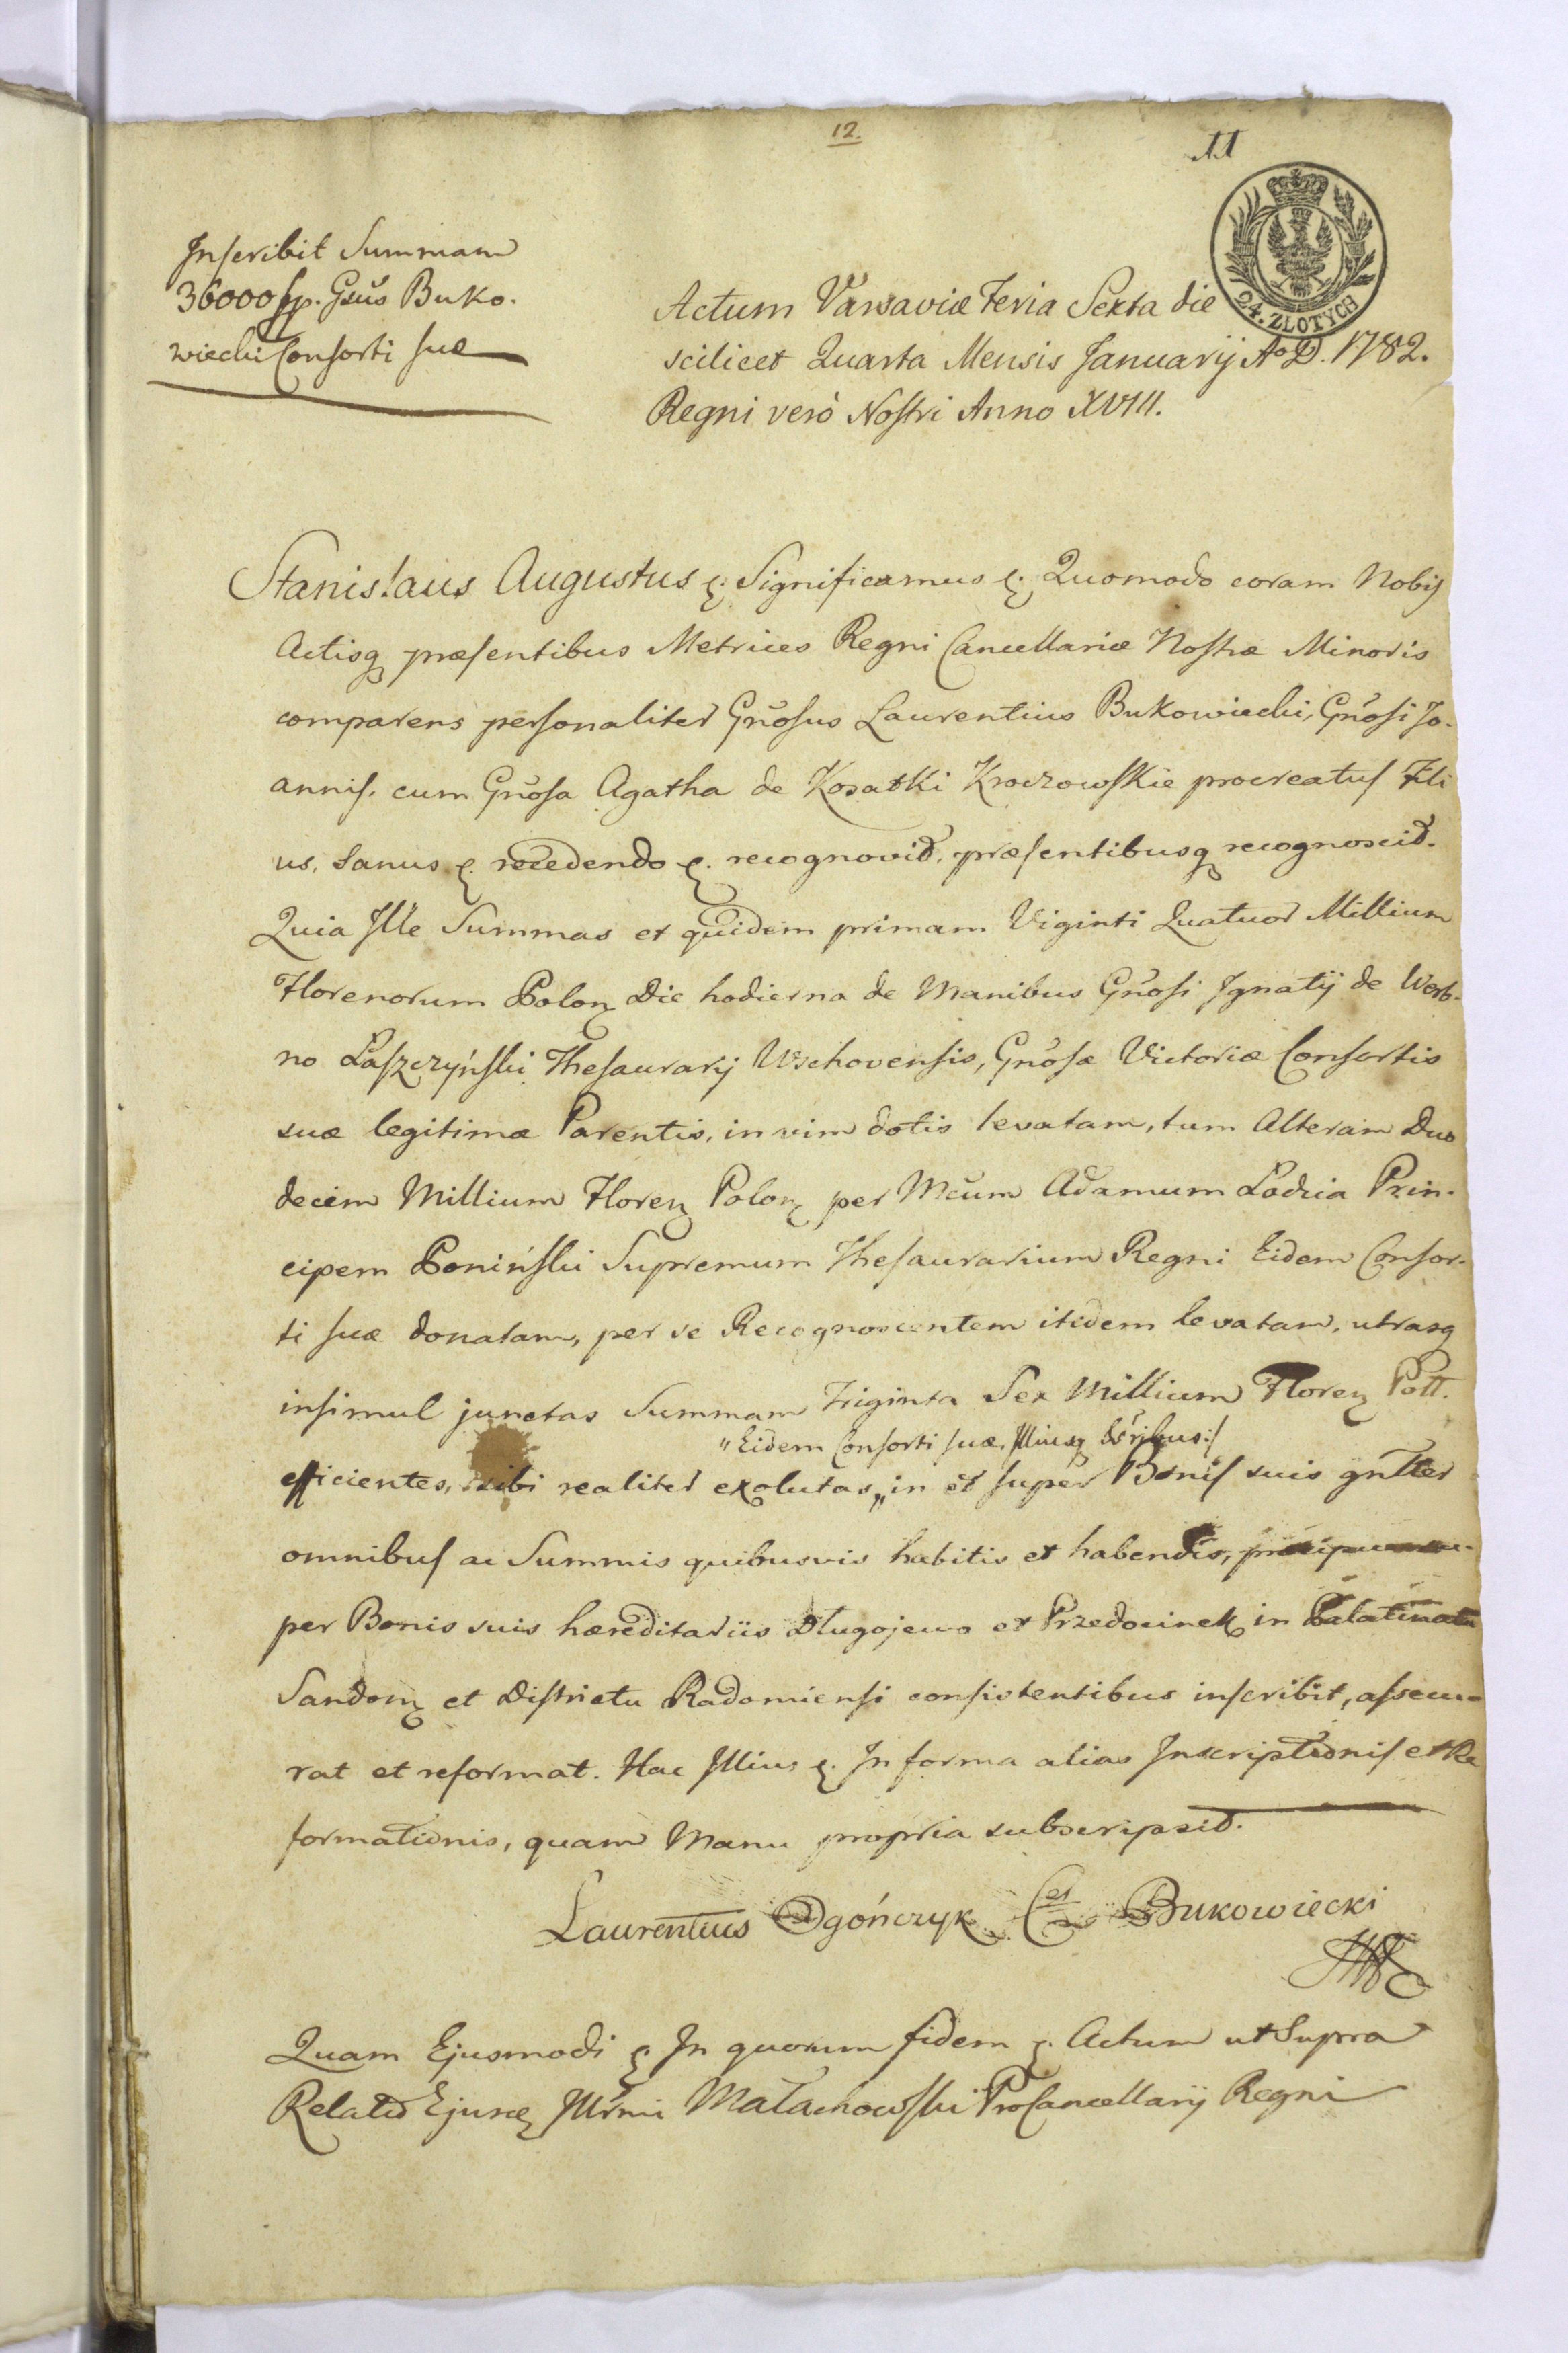 12.
11
24. ZŁOTYCH
Inscribit Summam
36000 fp. Gsus Buko-
wiecki Consorti suæ
Actum Varsaviæ Feria Sexta die
scilicet Quarta Mensis Januarij Aо D. 1782.
Regni verò Nostri Anno XVIII.
Stanislaus Augustus &. Significamus &. Quomodo coram Nobis
Actisq præsentibus Metrices Regni Cancellariæ Nostræ Minoris
comparens personaliter Gnosus Laurentius Bukowiecki, Gnosi Jo-
annis, cum Gnosa Agatha de Kosatki Kroczowskie procreatus Fili
us, Sanus &. recedendo &. recognovit, præsentibusq recognoscit.
Quia Ille Summas et quidem primam Viginti Quatuor Millium
Florenorum Polon Die hodierna de Manibus Gnosi Ignatij de Werb-
no Łaszczyński Thesaurarij Wschovensis, Gnosæ Victoriæ Consortis
suæ legitimæ Parentis, in vim dotis levatam, tum Alteram Duo
decim Millium Floren Polon per Mcum Adamum Lodzia Prin-
cipem Poniński Supremum Thesaurarium Regni Eidem Consor-
ti suæ donatam, per se Recognoscentem itidem levatam, utrasq
insimul junctas Summam Triginta Sex Millium Floren Poll.
"Eidem Consorti suæ, Illiusq Ssribus:/
efficientes, sibi realiter exolutas,, in et super Bonis suis gnller
omnibus ac Summis quibusvis habitis et habendis, præcipue su-
per Bonis suis hæreditariis Długojewo et Przedocinek in Palatinatu
Sandom et Districtu Radomiensi consistentibus inscribit, assecu-
rat et reformat. Hac Illius &. In forma alias Inscriptionis et Re
formationis, quam Manu propria subscripsit.
Laurentius Ogończyk Bukowiecki
Quam Ejusmodi &. In quorum fidem &. Actum ut Supra
Relatio Ejusd Illrmi Małachowski ProCancellarij Regni